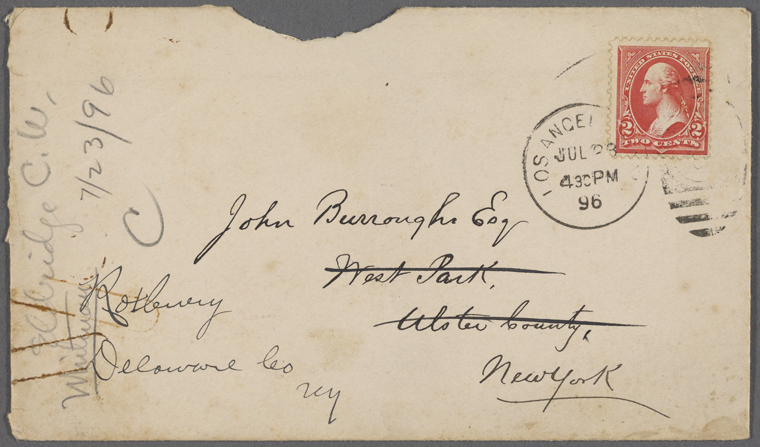 UNITED STATES POSTAGE
2 2
TWO CENTS
LOS ANGEL
JUL 23
430PM
96
John Burroughs Esq
West Park,
Ulster County,
New York
Roxbury
Delaware Co
NY
Eldridge C. W.
7/23/96
C
Whitman